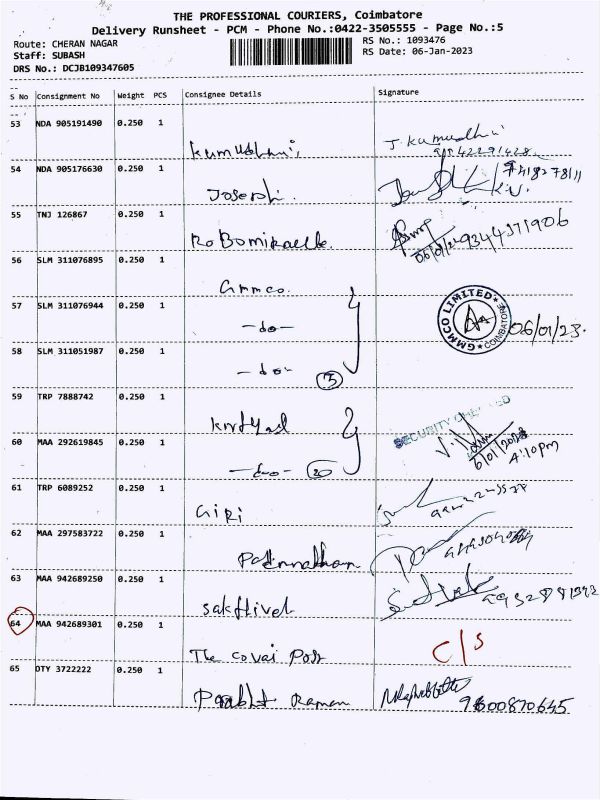 THE PROFESSIONAL COURIERS, Coimbatore
Delivery Runsheet - PCM - Phone No.:0422-3505555 - Page No.:5
Route: CHERAN NAGAR
RS No.: 1093476
Staff: SUBASH
RS Date: 06-Jan-2023
DRS No.: DCJB109347605
S No Consignment No Weight PCS Consignee Details Signature
53 NDA 905191490 0.250 1
J. Kumudhini
Kumudhini
54 NDA 905176630 0.250 1
Joseph.
55 TNJ 126867 0.250 1
9344371906
56 SLM 311076895 0.250 1
Gmmco.
57 SLM 311076944 0.250 1
GMMCO LIMITED COIMBATORE
-do-
06/01/23.
58 SLM 311051987 0.250 1
-do-
59 TRP 7888742 0.250 1
60 MAA 292619845 0.250 1
4:10pm
61 TRP 6089252 0.250 1
Giri
62 MAA 297583722 0.250 1
63 MAA 942689250 0.250 1
Sakthivel
64 MAA 942689301 0.250 1
C/S
The Covai Post
65 DTY 3722222 0.250 1
Raman
9600870645